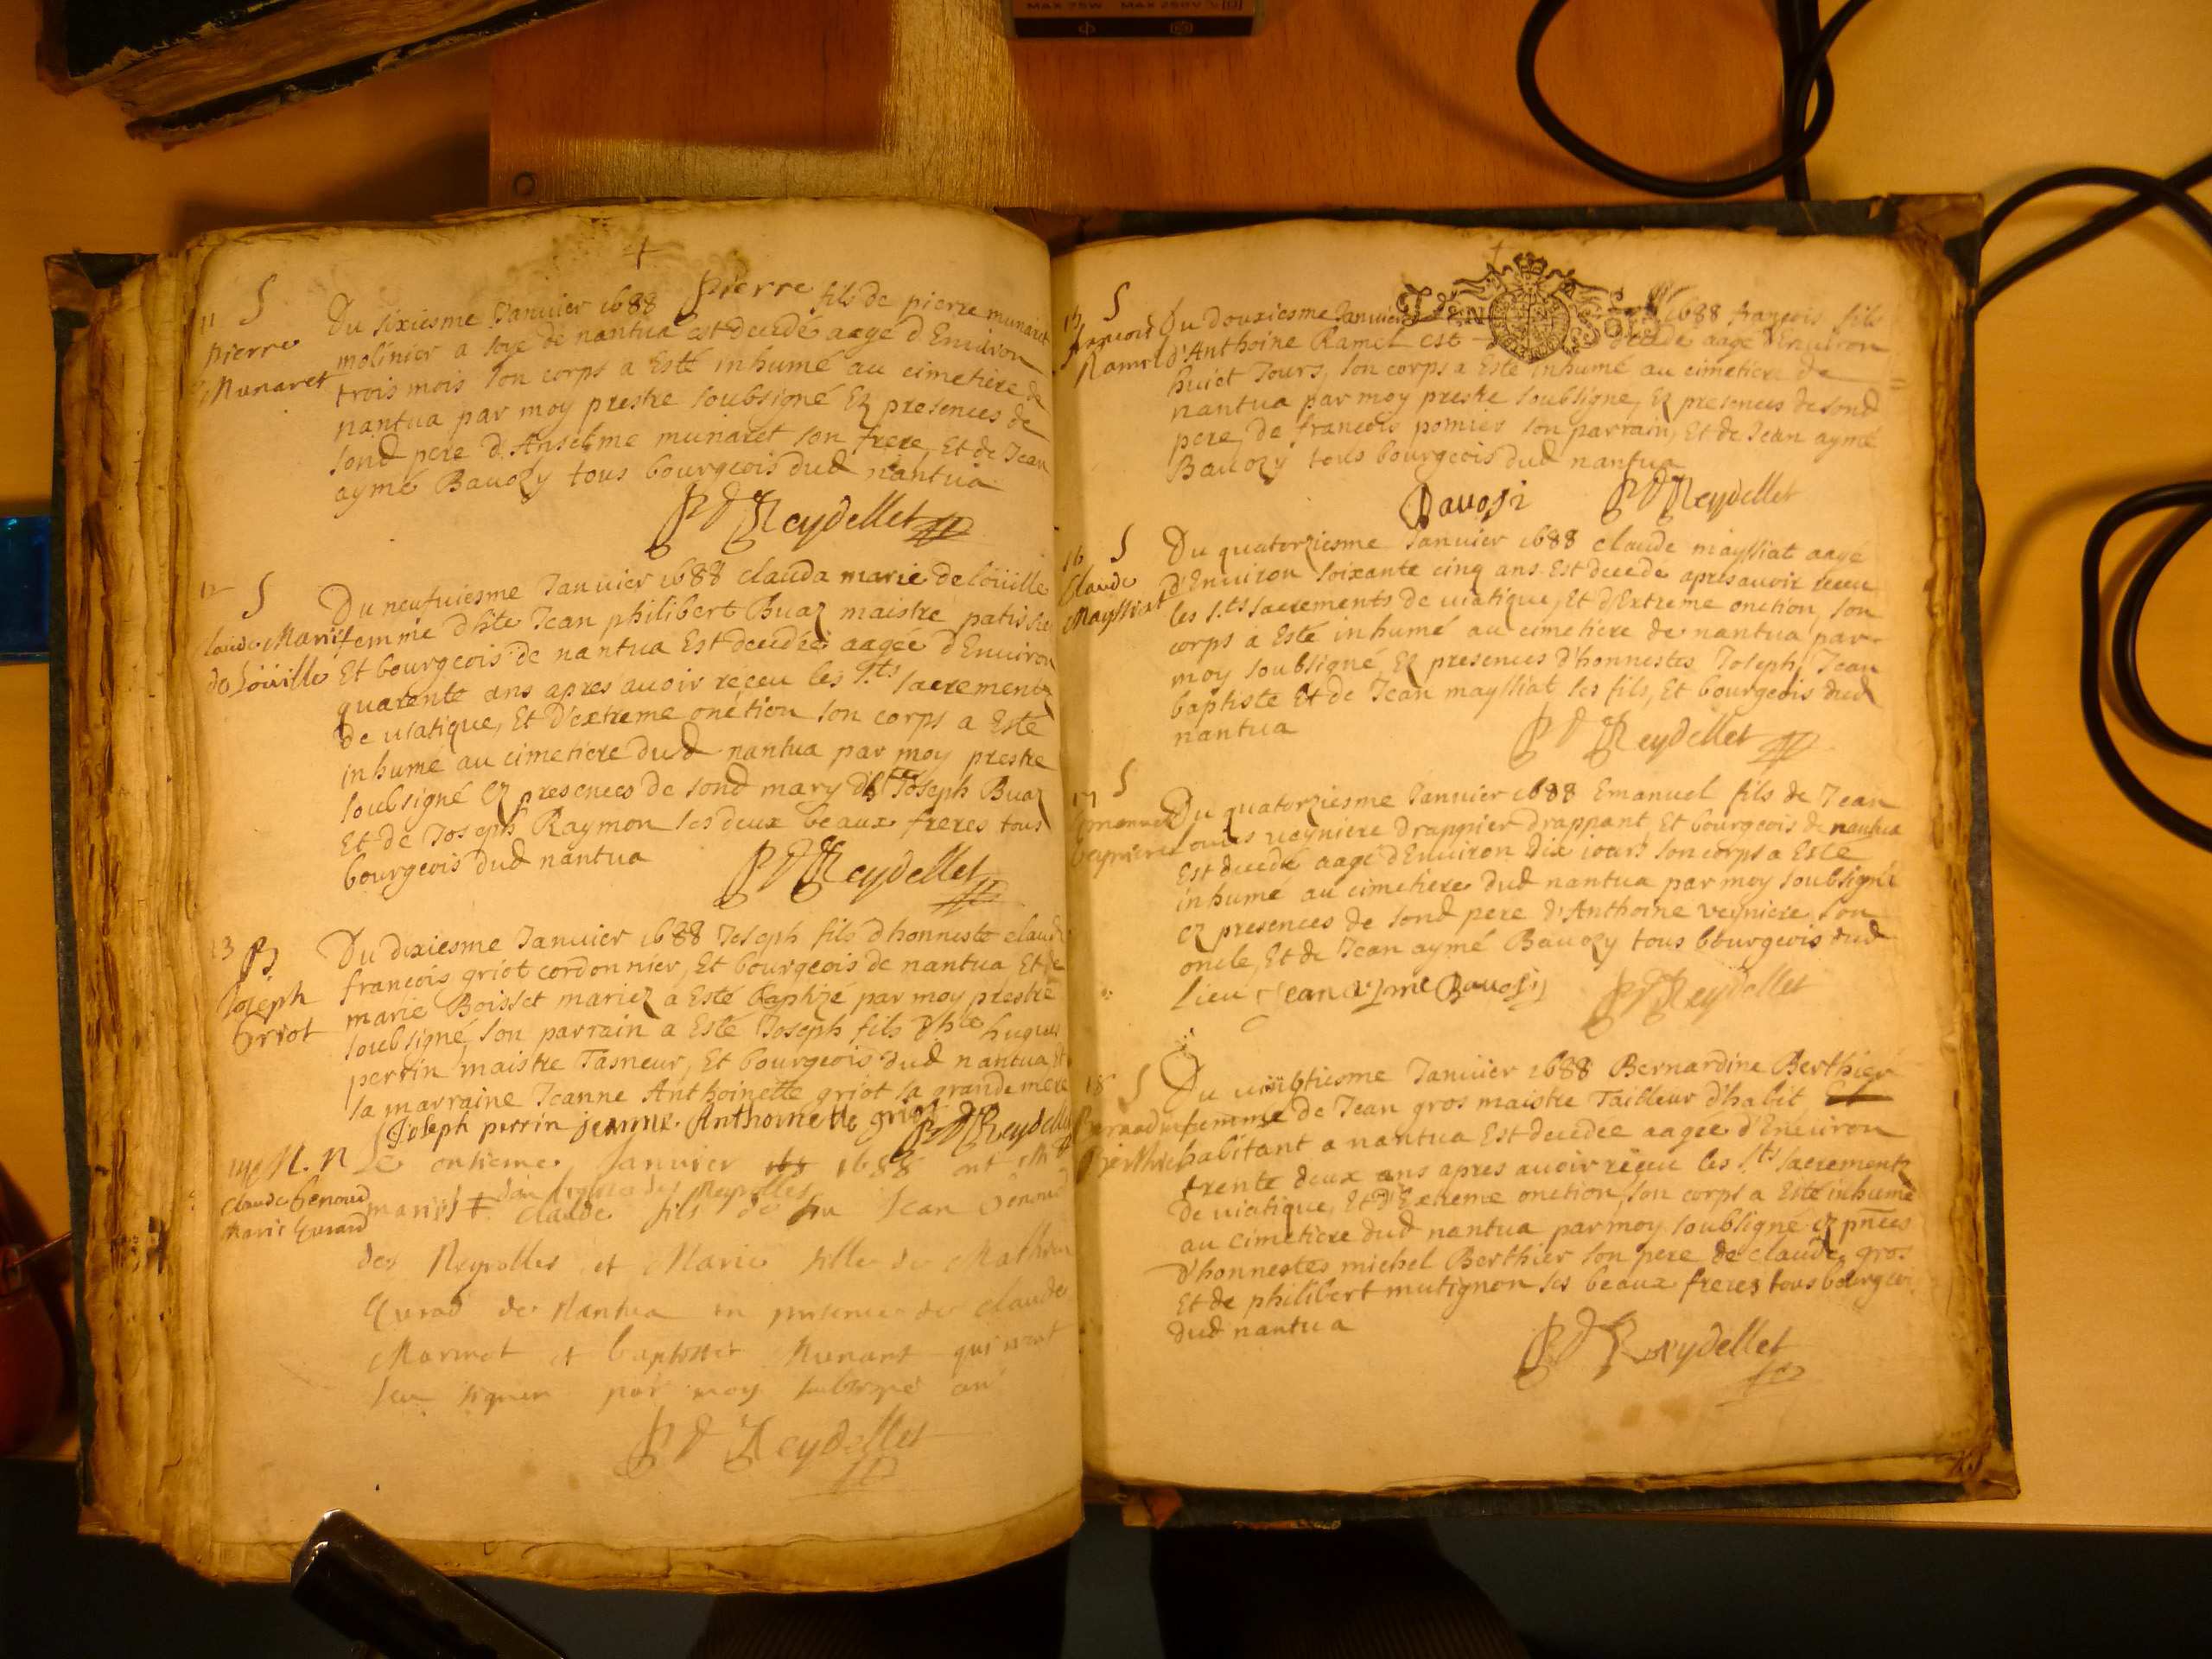 MAX 75W MAX 250V
11 S
pierre
Munaret
Du sixiesme Janvier 1688 pierre fils de pierre munaret
molinier a soye de nantua est decedé aagé d'Environ
trois mois son corps a Esté inhumé au cimetiere de
nantua par moy prestre soubsigné Ez presences de
sond pere d'Anselme munaret son frere, Et de Jean
aymé Bavozy tous bourgeois dud nantua
Reydellet
12 S
claude Marie
de Loüille
Du neufviesme Janvier 1688 clauda marie de loüille
femme d'hte Jean philibert Buaz maistre patissie
Et bourgeois de nantua Est decedée aagée d'Environ
quarente ans apres avoir receu les sts sacrementz
de viatique, Et d'extreme onction son corps a Esté
inhumé au cimetiere dud nantua par moy prestre
soubsigné Ez presences de sond mary d'hte Joseph Buaz
Et de Joseph Raymon ses deux beaux freres tous
bourgeois dud nantua
Reydellet
13 B
Joseph
Griot
Du dixiesme Janvier 1688 Joseph fils d'honneste claude
françois griot cordonnier, Et bourgeois de nantua, Et de
marie Boisset mariez a Esté Baptizé par moy prestre
soubsigné, son parrain a Esté Joseph fils d'hte hugues
perrin maistre Tasneur, Et bourgeois dud nantua, Et
sa marraine Jeanne Anthoinette griot sa grande mere
Joseph perrin jeanne Anthoinette griot Reydellet
14 M. n
claude Genoud
Marie Gurad
Le onsieme Janvier 1688 ont esté
mariés claude fils de feu Jean Genoud
des Neyrolles et Marie fille de Mathieu
Gurad de Nantua en presence de claude
Marmet et baptiste Munaret qui n'ont
sceu signer par moy subsigné
Reydellet
15 S
françois
Ramel
Du douziesme Janvier 1688 françois fils
GEN SOLS
d'Anthoine Ramel est decedé aagé d'Environ
huict Jours, son corps a Esté inhumé au cimetiere de
nantua par moy prestre soubsigné, Ez presences de sond
pere, de françois pomier son parrain, Et de Jean aymé
Bavozy tous bourgeois dud nantua
Bavozi Reydellet
16 S
Claude
Mayssiat
Du quatorziesme Janvier 1688 claude mayssiat aagé
d'Environ soixante cinq ans. Est decedé apres avoir receu
les s.ts sacrements de viatique, Et d'Extreme onction, son
corps a Esté inhumé au cimetiere de nantua par
moy soubsigné Ez presences d'honnestes Joseph, Jean
baptiste Et de Jean mayssiat ses fils, Et bourgeois dud
nantua
Reydellet
17 S
Emanuel
Veyniere
Du quatorziesme Janvier 1688 Emanuel fils de Jean
Louis veyniere drappier drappant, Et bourgeois de nantua
Est decedé aagé d'Environ dix jours son corps a Esté
inhumé au cimetiere dud nantua par moy soubsigné
Ez presences de sond pere d'Anthoine veyniere son
oncle, Et de Jean aymé Bavozy tous bourgeois dud
lieu Jean Aymé Bavozi Reydellet
18 S
Bernardine
Berthier
Du vingtiesme Janvier 1688 Bernardine Berthier
femme de Jean gros maistre Tailleur d'habit Et
habitant a nantua Est decedée aagée d'Environ
trente deux ans apres avoir receu les s.ts sacrementz
de viatique, Et d'Extreme onction, son corps a Esté inhumé
au cimetiere dud nantua par moy soubsigné Ez pnces
d'honnestes michel Berthier son pere de claude gros
Et de philibert mutignon ses beaux freres tous bourgeois
dud nantua
Reydellet